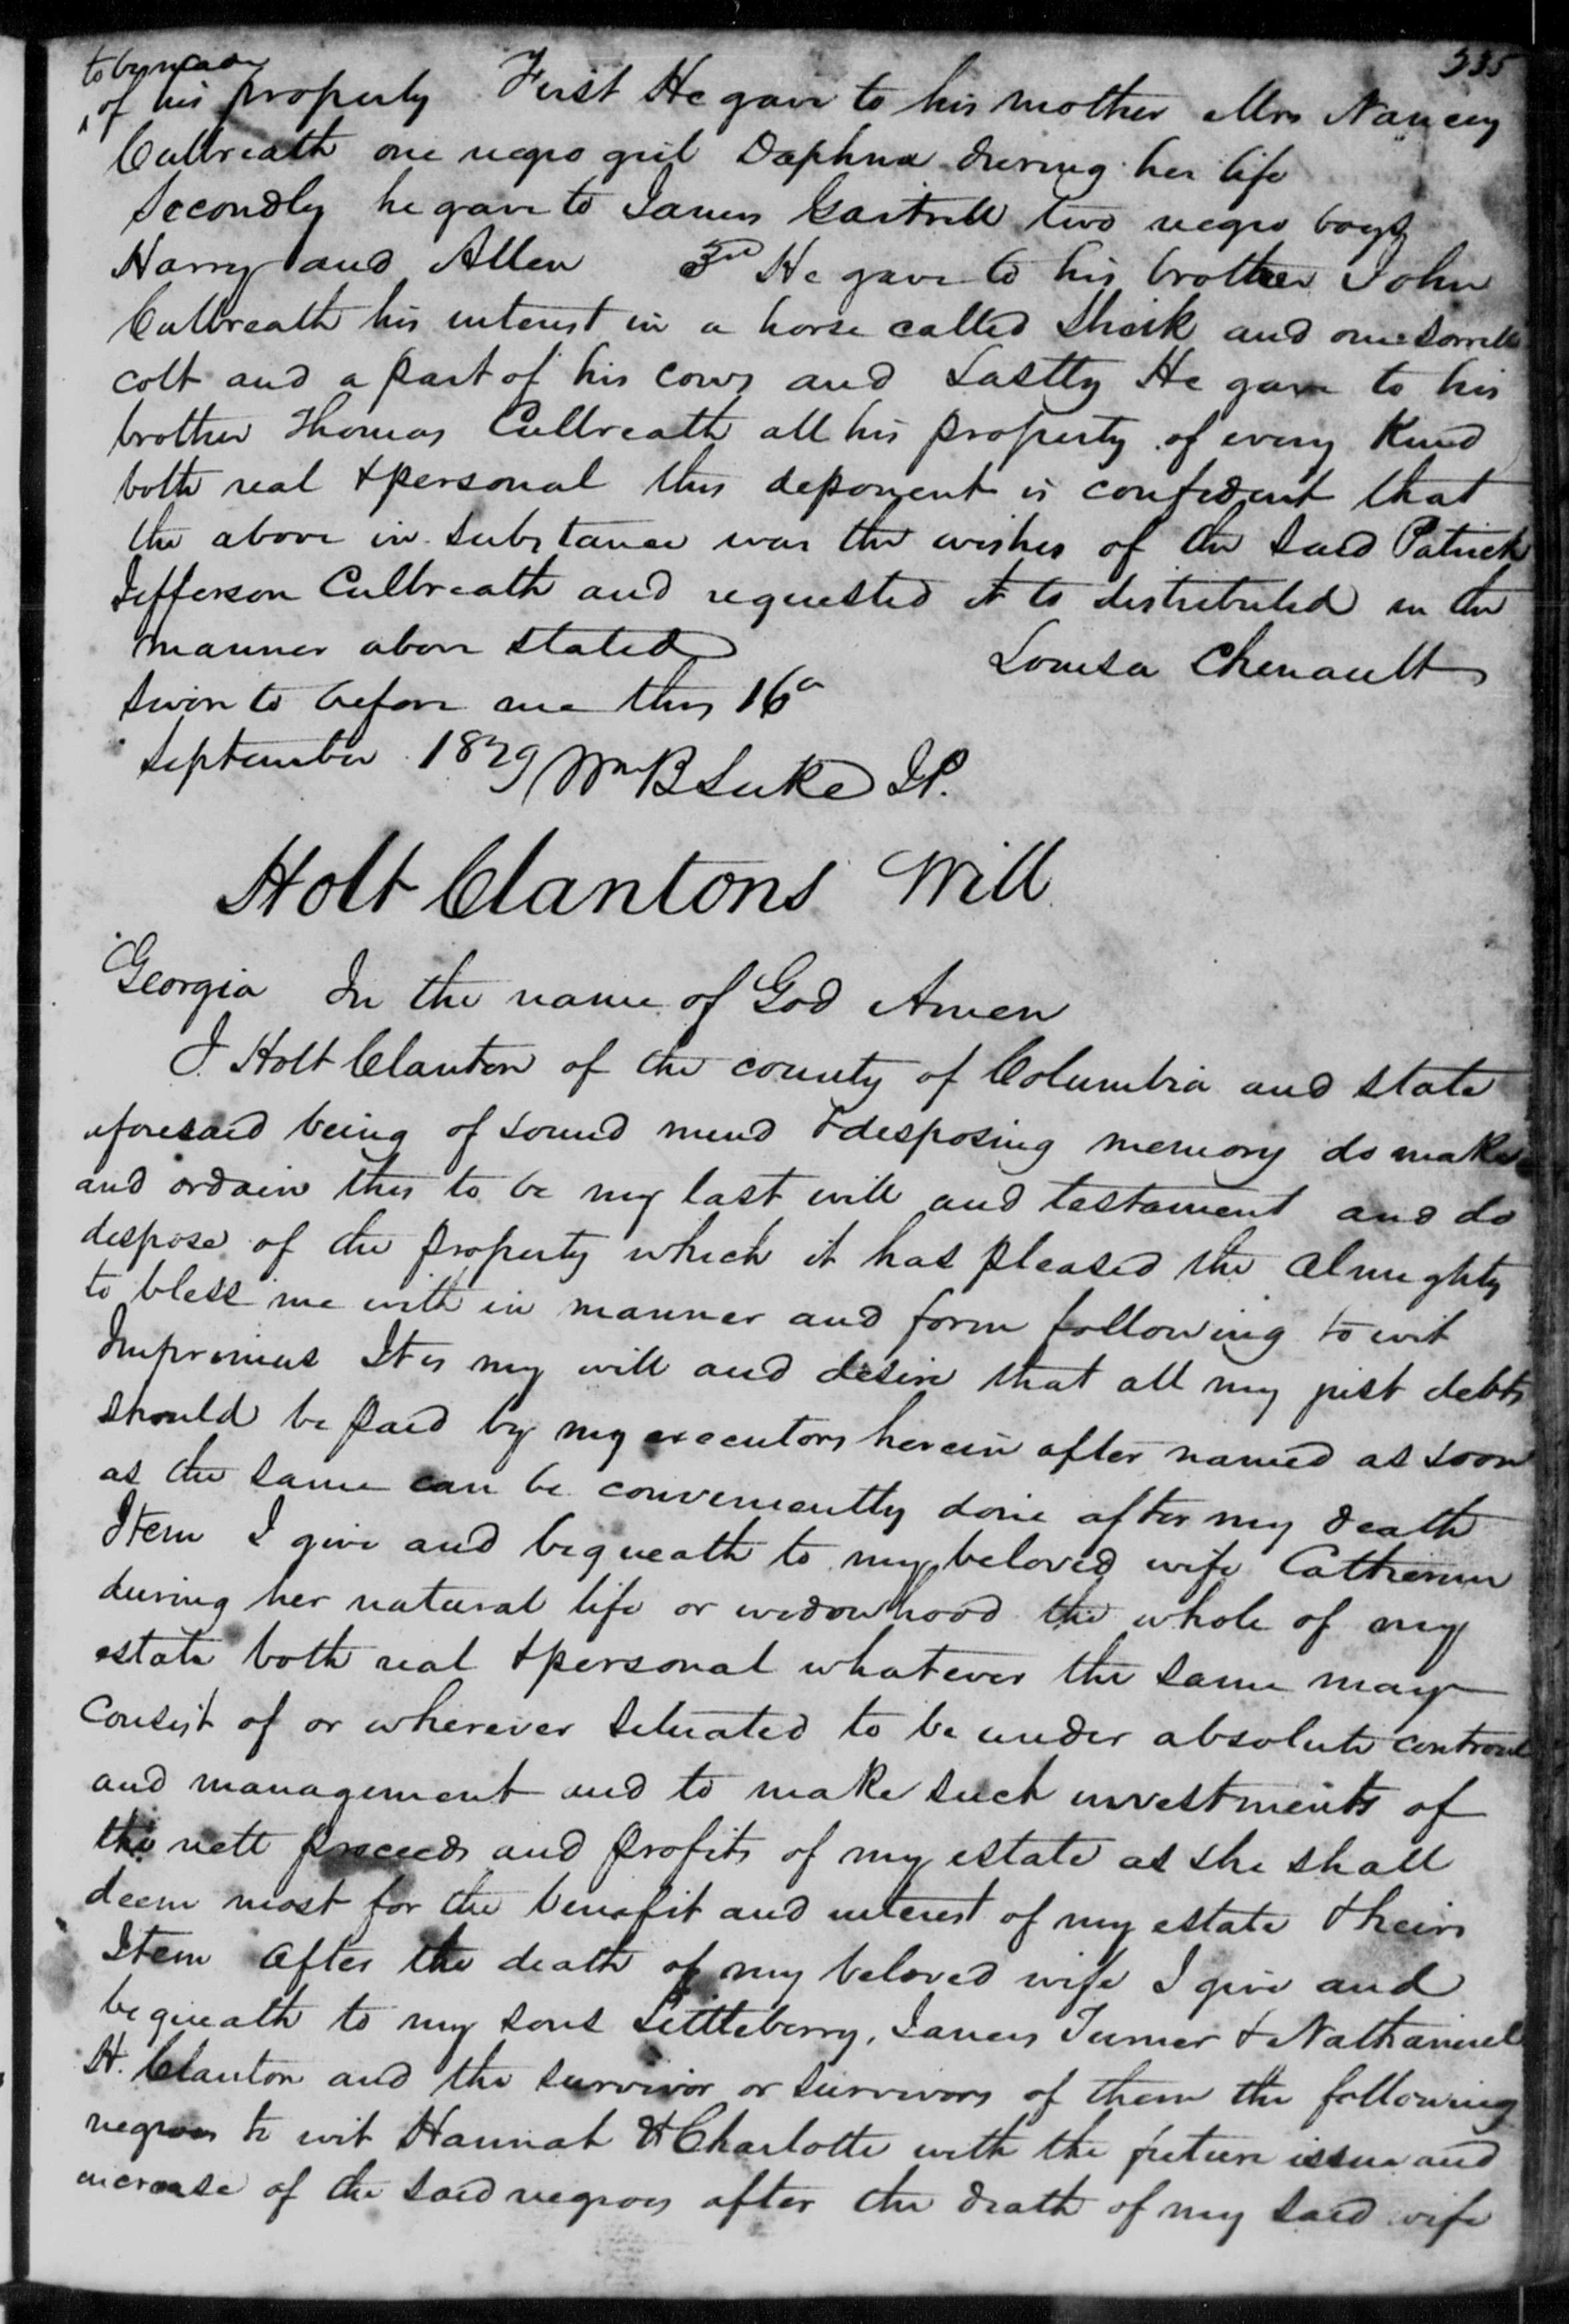 335
to be made
of his property First He gave to his mother Mrs Nancy
Culbreath one negro girl Daphna during her life
Secondly he gave to James Gartrell two negro boys
Harry and Allen 3rd He gave to his brother John
Culbreath his interest in a horse called Sheik and one sorrell
colt and a part of his cows and Lastly He gave to his
brother Thomas Culbreath all his property of every Kind
both real & personal this deponent is confident that
the above in substance was the wishes of the said Patrick
Jefferson Culbreath and requested it to distributed in the
manner above stated
Louisa Chenault
Sworn to before me this 16
September 1829 Wm B Luke J.P.
Holt Clantons Will
Georgia In the name of God Amen
I. Holt Clanton of the county of Columbia and state
aforesaid being of sound mind & desposing memory do make
and ordain this to be my last will and testament and do
despose of the property which it has pleased the almighty
to bless me with in manner and form following to wit
Imprimus It is my will and desire that all my just debts
should be paid by my executors herein after named as soon
as the same can be conveniently done after my death
Item I give and bequeath to my beloved wife Catherine
during her natural life or widowhood the whole of my
estate both real & personal whatever the same may
Consist of or wherever situated to be under absolute controul
and management and to make such investments of
the nett proceeds and profits of my estate as she shall
deem most for the benefit and interest of my estate & heirs
Item After the death of my beloved wife I give and
bequeath to my sons Littleberry, James Turner & Nathaniel
H. Clanton and the survivor or survivors of them the following
negroes to wit Hannah & Charlotte with the future issue and
increase of the said negroes after the death of my said wife